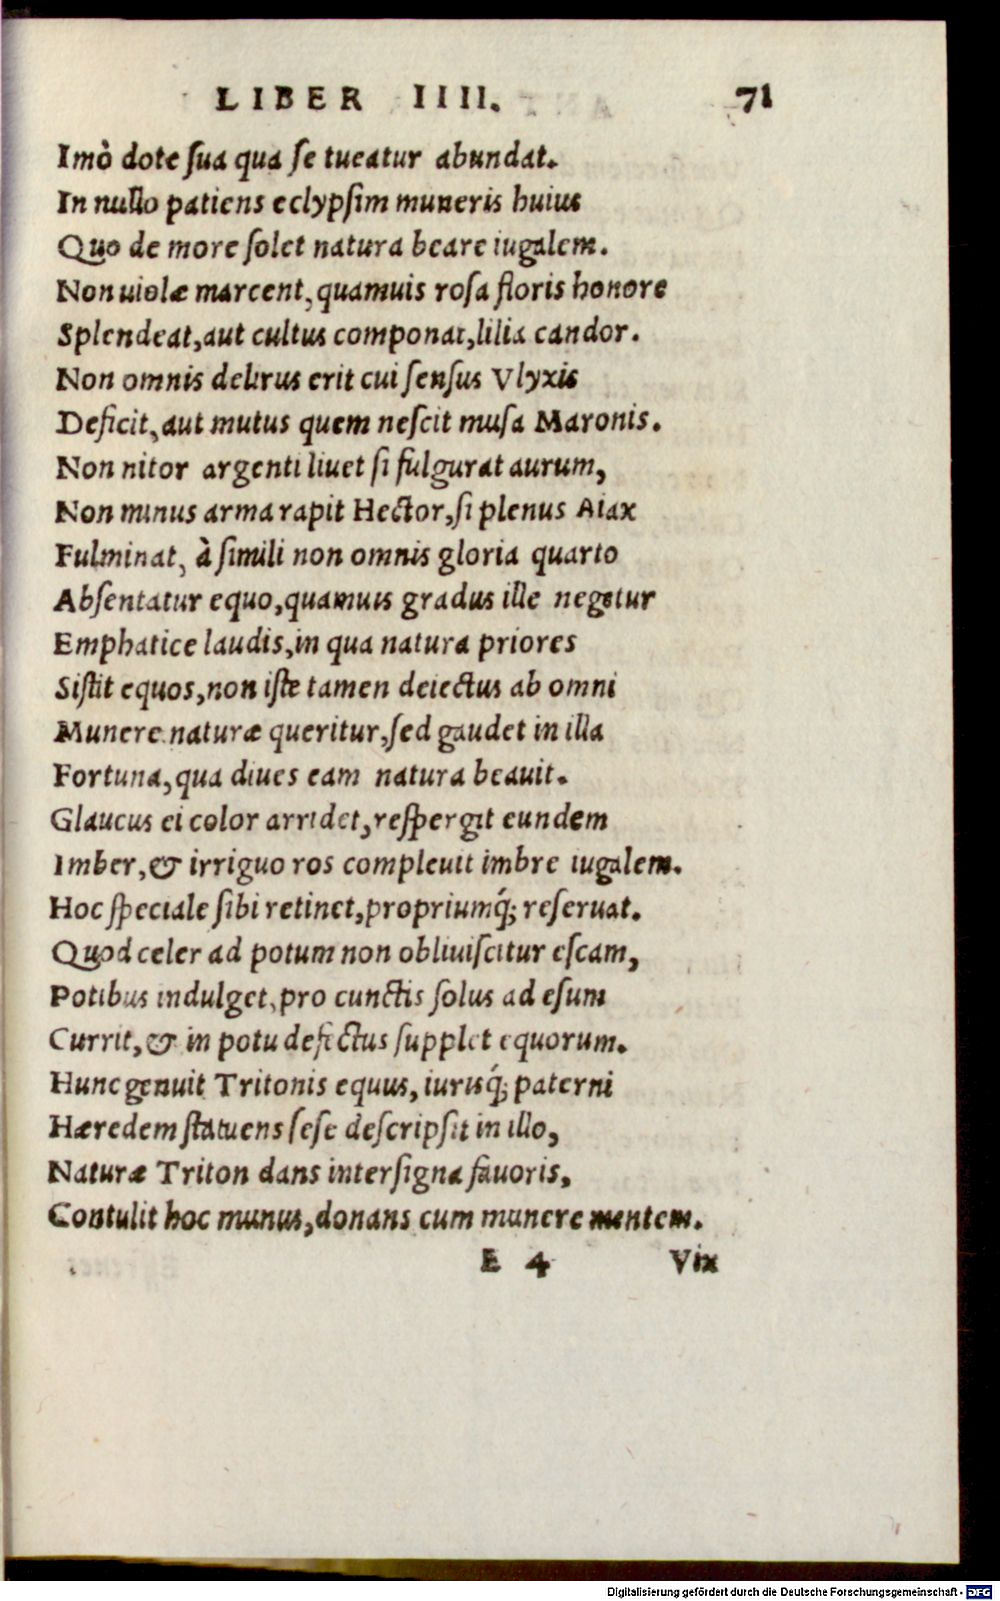 LIBER IIII. 71
Imò dote ſua qua ſe tueatur abundat.
In nullo patiens eclypſim muneris huius
Quo de more ſolet natura beare iugalem.
Non uiolæ marcent, quamuis roſa floris honore
Splendeat, aut cultus componat, lilia candor.
Non omnis delirus erit cui ſenſus Vlyxis
Deficit, aut mutus quem neſcit muſa Maronis.
Non nitor argenti liuet ſi fulgurat aurum,
Non minus arma rapit Hector, ſi plenus Aiax
Fulminat, à ſimili non omnis gloria quarto
Abſentatur equo, quamuis gradus ille negetur
Emphatice laudis, in qua natura priores
Siſtit equos, non iſte tamen deiectus ab omni
Munere naturæ queritur, ſed gaudet in illa
Fortuna, qua diues eam natura beauit.
Glaucus ei color arridet, reſpergit eundem
Imber, & irriguo ros compleuit imbre iugalem.
Hoc ſpeciale ſibi retinet, propriumq́; reſeruat.
Quod celer ad potum non obliuiſcitur eſcam,
Potibus indulget, pro cunctis ſolus ad eſum
Currit, & in potu defectus ſupplet equorum.
Hunc genuit Tritonis equus, iurisq́; paterni
Hæredem ſtatuens ſeſe deſcripſit in illo,
Naturæ Triton dans interſigna fauoris,
Contulit hoc munus, donans cum munere mentem.
E 4 Vix
Digitalisierung gefördert durch die Deutsche Forschungsgemeinschaft - DFG